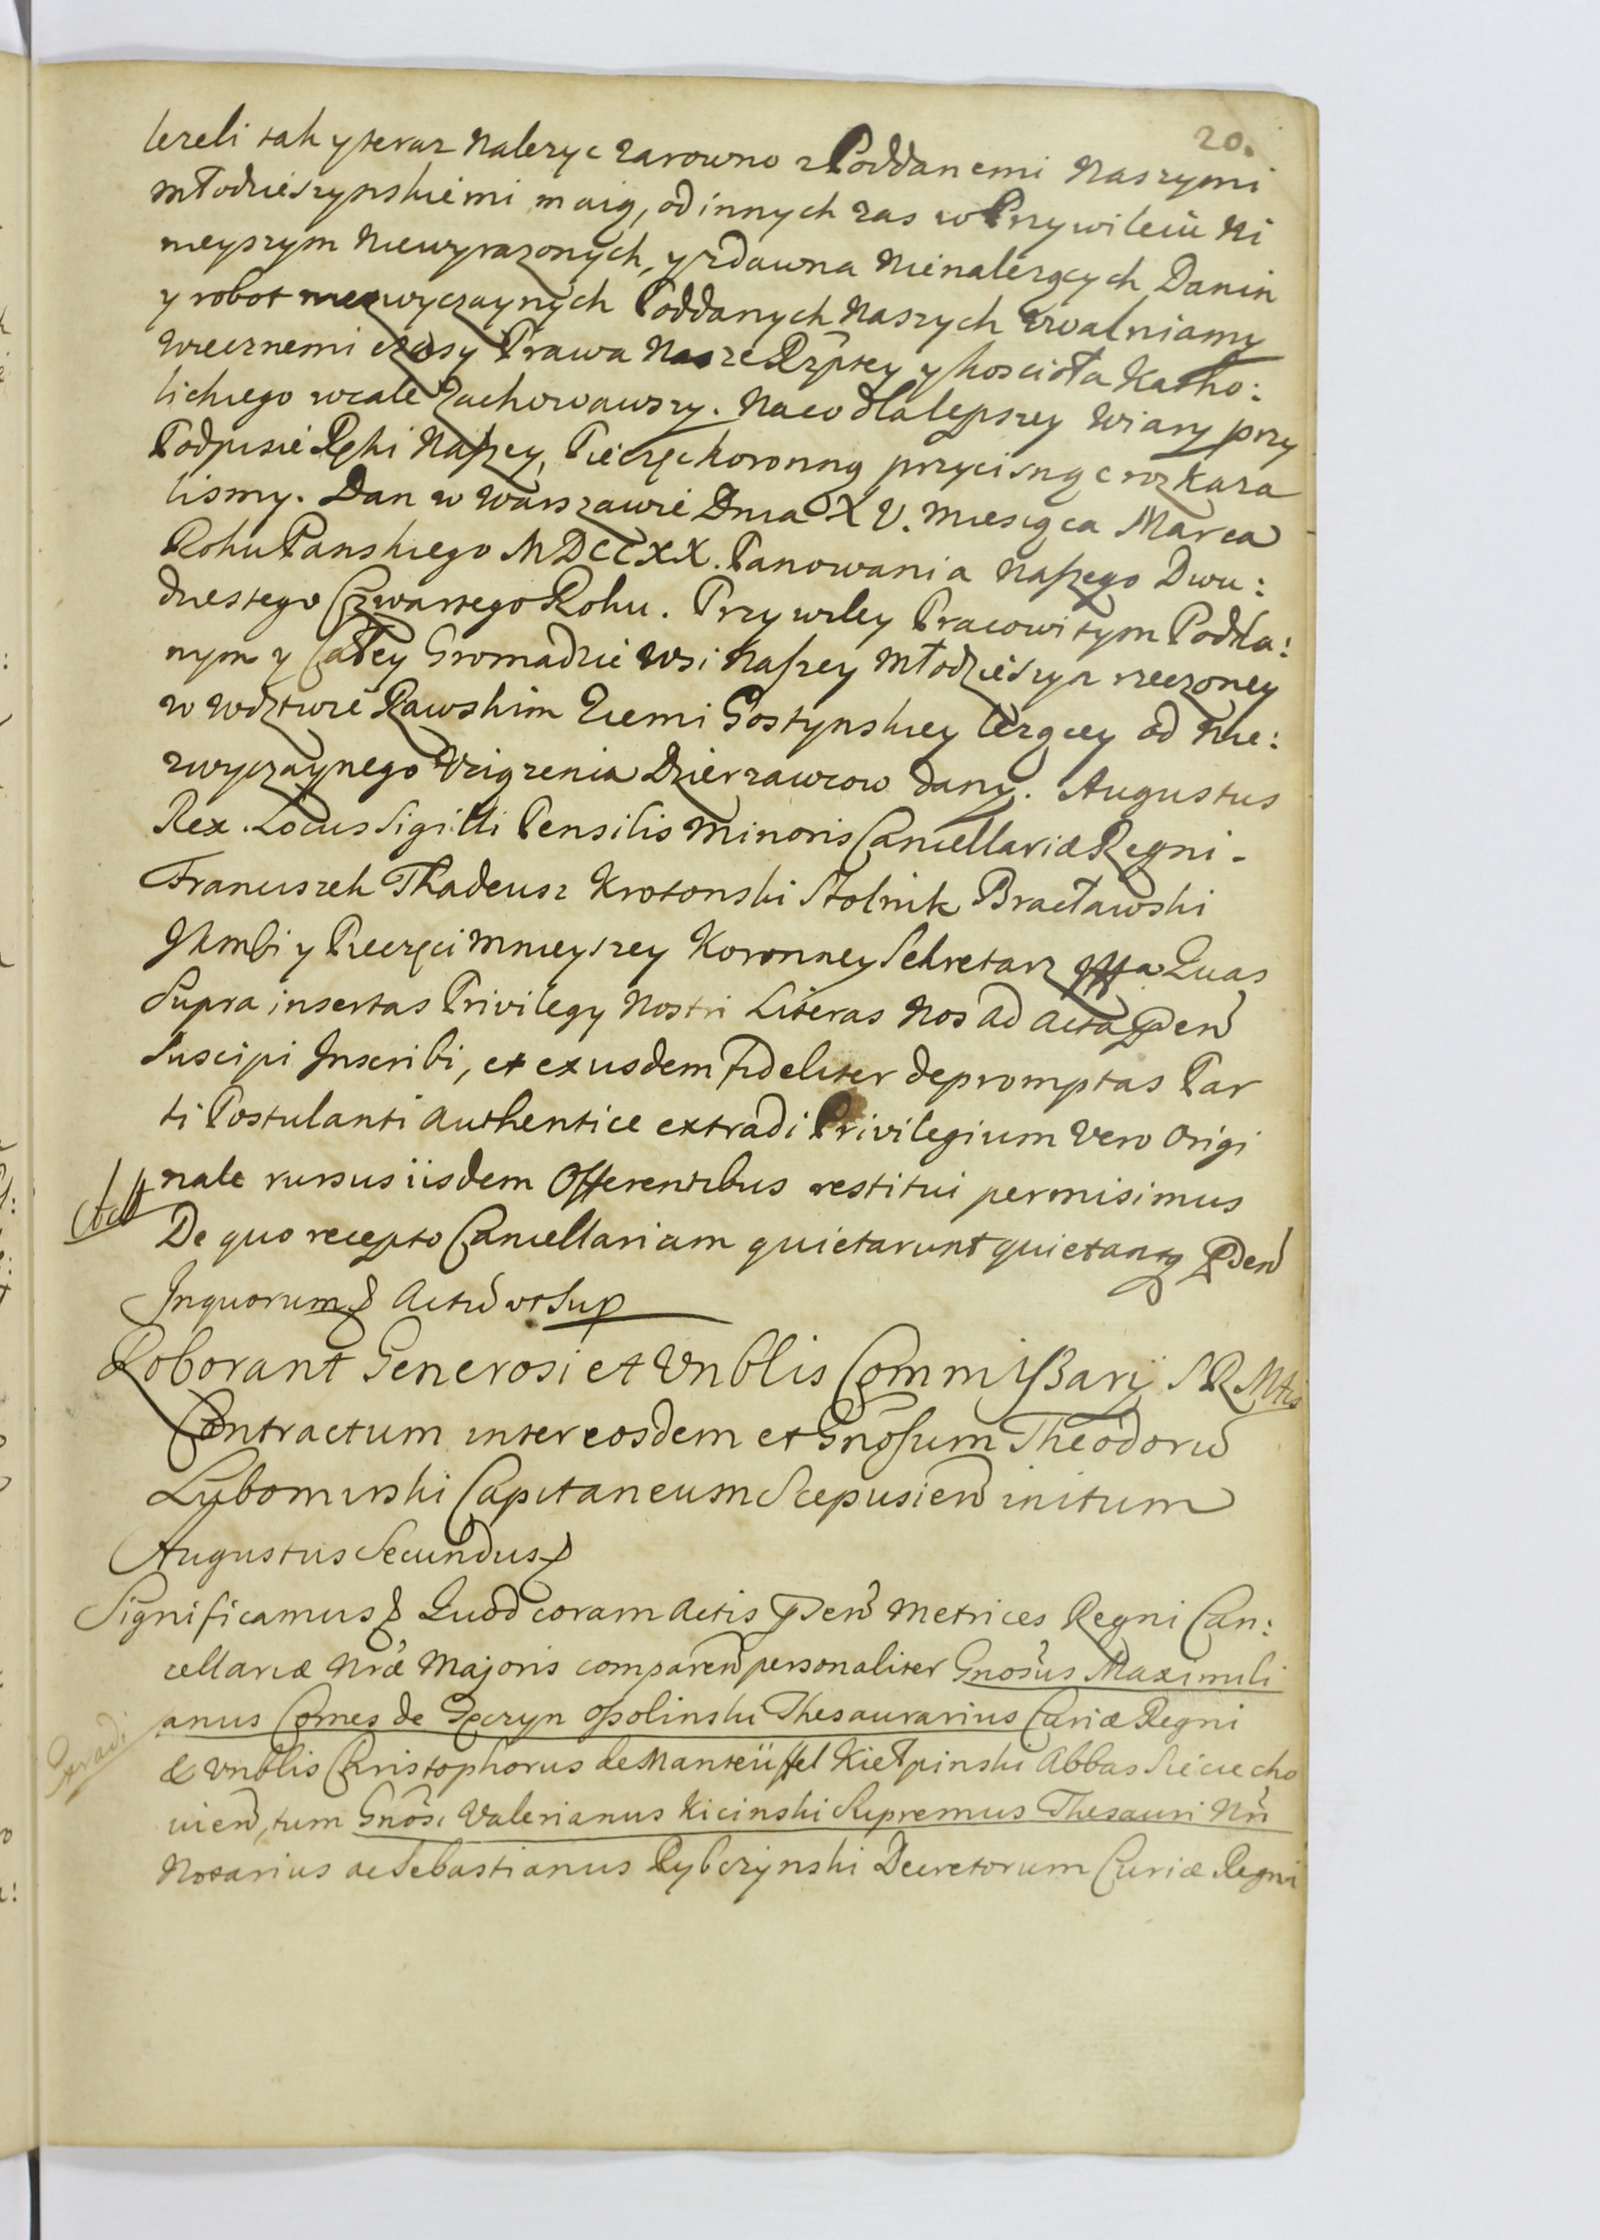 20.
lezeli tak y teraz Nalezyc zarowno z Poddanemi Naszymi
Młodzieszynskiemi maią, od innych zas w Przywileiu Ni
nieyszym Niewyrazonych, y zdawna Nienalezących Danin
y robot niezwyczaynych Poddanych Naszych Uwalniamy
Wiecznemi czasy Prawa Nasze Rzptey y koscioła Katho:
lickiego wcale Zachowawszy. Na co dla lepszey Wiary przy
Podpisie Ręki Naszey, Pieczęc koronną przycisnąc rozkaza
lismy. Dan w Warszawie Dnia XV. Miesiąca Marca
Roku Panskiego MDCCXX. Panowania Naszego Dwu:
dziestego Czwartego Roku. Przywiley Pracowitym Podda:
nym y Całey Gromadzie Wsi Naszey Młodzieszyn rzeczoney
w Wdztwie Rawskim Ziemi Gostynskiey lezącey od Nie:
zwyczaynego Uciązenia Dzierzawcow dany. Augustus
Rex. Locus Sigilli Pensilis Minoris Cancellariæ Regni.
Franciszek Thadeusz Krotonski Stolnik Bracławski
JKMci y Pieczęci Mnieyszey Koronney Sekretarz Quas
Supra insertas Privilegy Nostri Literas Nos ad Acta pden
Suscipi Inscribi, et ex iisdem fideliter depromptas Par
ti Postulanti Authentice extradi Privilegium Vero Origi
nale rursus iisdem Offerentibus restitui permisimus
De quo recepto Cancellariam quietarunt quietantq pden
In quorum & Actu ut Sup
Roborant Generosi et Vnblis Commissarij S R Mtis
Contractum inter eosdem et Gnosum Theodoru
Lubomirski Capitaneum Scepusien initum
Augustus Secundus &
Significamus & Quod coram Actis pden Metrices Regni Can:
cellariæ Nræ Majoris comparen personaliter Gnosus Maximili
anus Comes de Tęczyn Ossolinski Thesaurarius Curiæ Regni
Extradi
& Vnblis Christophorus de Manteüffel Kiełpinski Abbas Sieciecho
vien, tum Gnosi Valerianus Kicinski Supremus Thesauri Nri
Notarius ac Sebastianus Rybczynski Decretorum Curiæ Regni